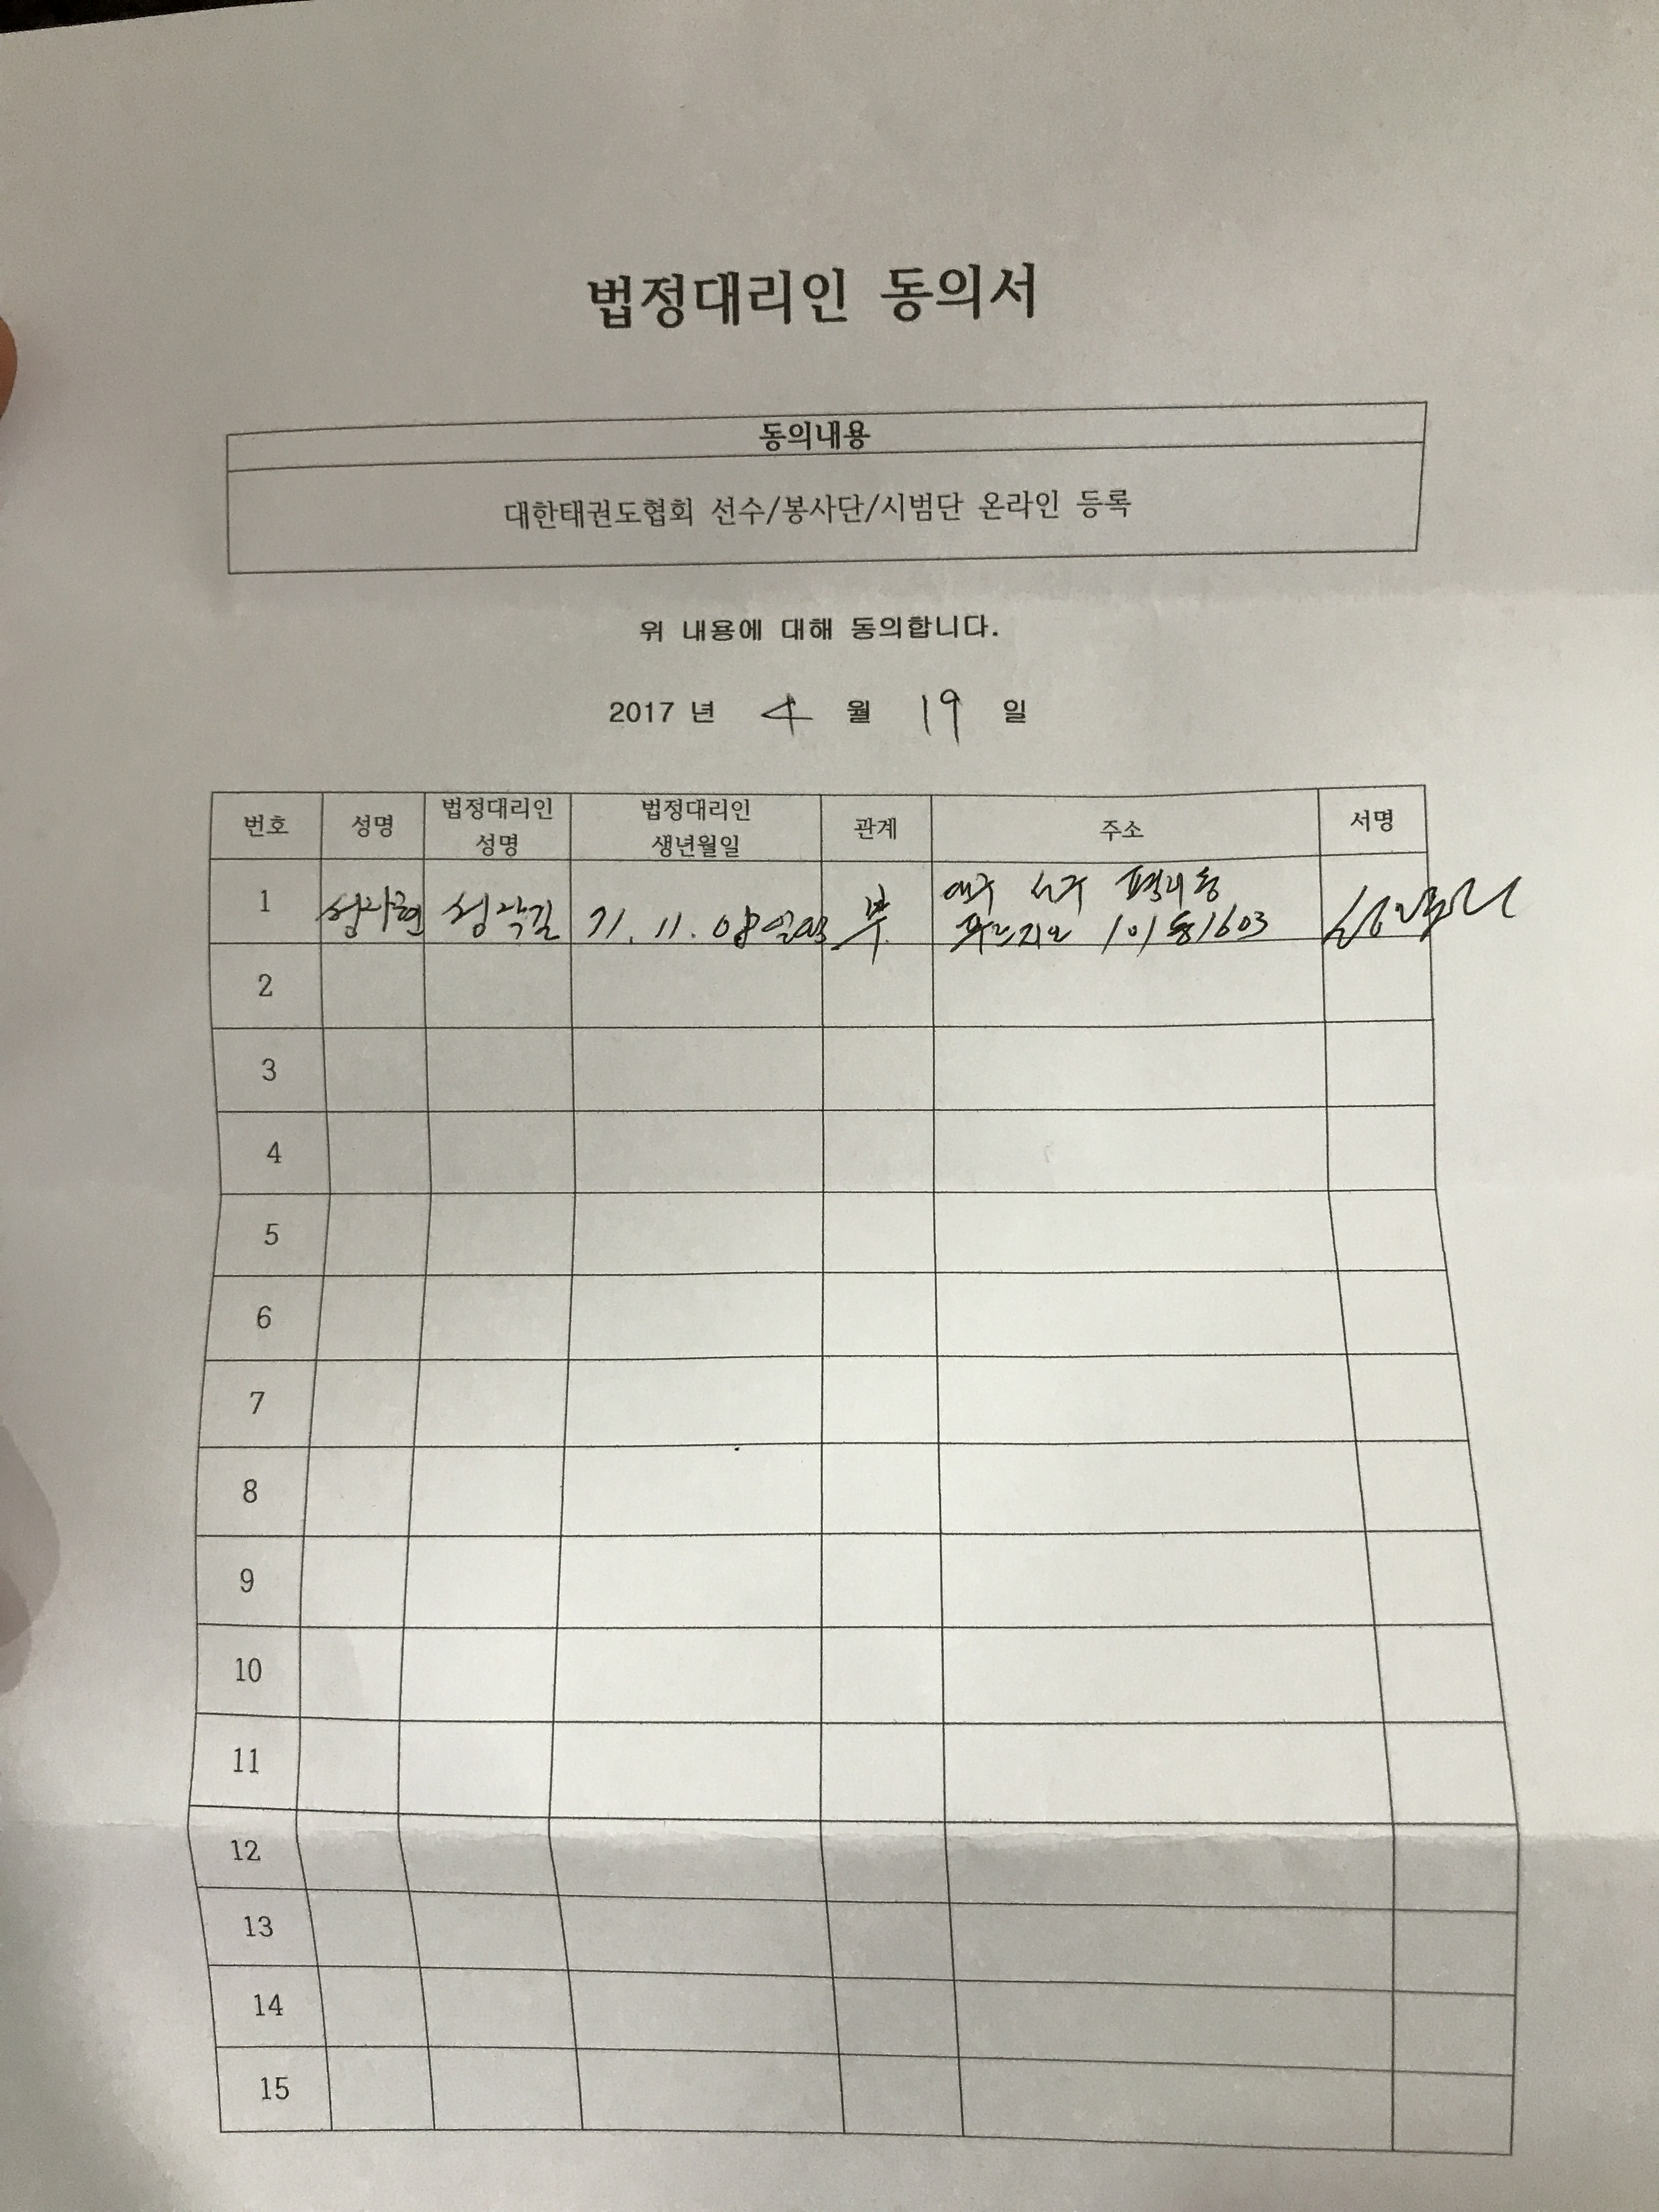 법정대리인 동의서
동의내용
대한태권도협회 선수/봉사단/시범단 온라인 등록
위 내용에 대해 동의합니다.
2017 년 4 월 19 일
번호 성명 법정대리인 성명 법정대리인 생년월일 관계 주소 서명
1 71. 11. 08 부
101동 1603
2
3
4
5
6
7
8
9
10
11
12
13
14
15